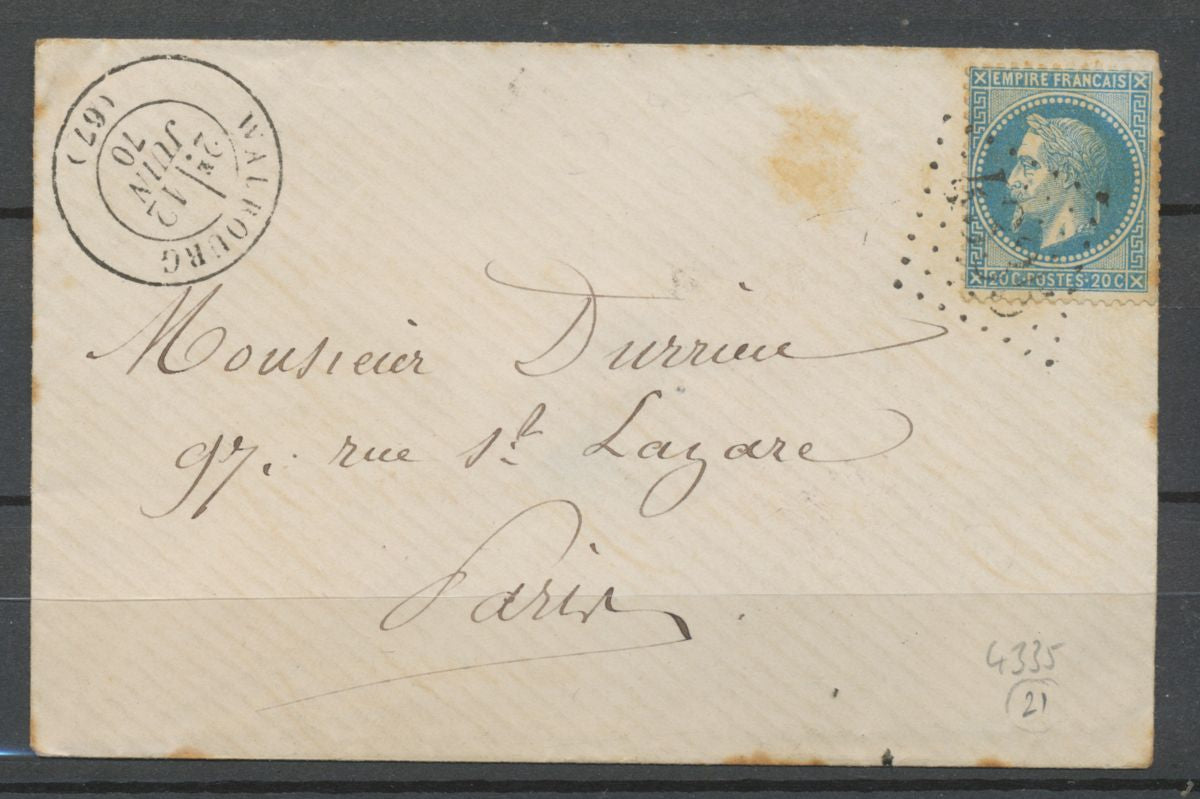 WALBOURG
2E
12
JUIN
70
(67)
EMPIRE FRANCAIS
20 C·POSTES·20 C
Monsieur Durrieu
97. rue St. Lazare
Paris
4335
21